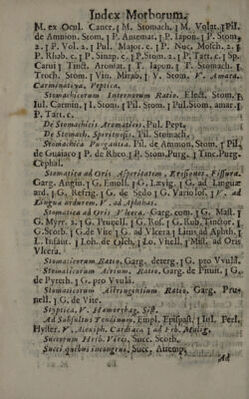 Index Morborum.
M. ex Ocul. Cancr. ʃ M. Stomach. ʃ M. Volat. ʃ Pil.
de Ammon. Stom. ʃ P. Antemat. ʃ P. Iapon. ʃ P. Stom.
2. ʃ P. Vol. 2. ʃ Pul. Major. c. ʃ P. Nuc. Mosch. 2. ʃ
P. Rhab. c. ʃ P. Sinap. c. ʃ P. Stom. 2. ʃ P. Tart. c. ʃ Sp.
Carui ʃ Tinct. Aromat. ʃ T. Iapon. ʃ T. Stomach. ʃ
Troch. Stom. ʃ Vin. Mirab. ʃ V. Stom. V. Amara.
Carminativa, Peptica.
Stomachicorum Internorum Ratio. Elect. Stom. ʃ
Iul. Carmin. ʃ I. Stom. ʃ Pil. Stom. ʃ Pul. Stom. amar. ʃ
P. Tart. c.
De Stomachicis Aromaticis. Pul. Pept.
De Stomach. Pil. Stomach.
Stomachica Purgantia. Pil. de Ammon. Stom. ʃ Pil.
de Guaiaco ʃ P. de Rheo. ʃ P. Stom. Purg. ʃ Tinc. Purg.
Cephal.
Stomatica ad Oris Asperitatem, Fissura.
Garg. Angin. ʃ G. Emol. ʃ G. Lævig. ʃ G. ad Linguæ
ard. ʃ G. Refrig. ʃ G. de Sedo ʃ G. Variolos. ʃ V. ad
Linguæ ardorem. V. ad Aphthas.
Stomatica ad Oris Ulcera. Garg. com. ʃ G. Mall. ʃ
G. Myrr. 2. ʃ G. Prunell. ʃ G. Ros. ʃ G. Rub. Tinctor. ʃ
G. Scorb. ʃ G. de Vite ʃ G. ad Ulcera ʃ Linus ad Aphth. ʃ
L. Infant. ʃ Loh. de Colch. ʃ Lo. Vitell. ʃ Mist. ad Oris
Ulcera.
Stomaticorum Ratio. Garg. deterg. ʃ G. pro Uvula.
Stomaticorum Acrium. Ratio. Garg. de Pituit. ʃ G.
de Pyreth. ʃ G. pro Uvula.
Stomaticorum Astringentium Ratio. Garg. Prunell. ʃ G. de Vite.
Styptica. V. Hæmorrhag. Sist.
Ad Subsultus Tendinum. Empl. Epispast. ʃ Iul. Perl.
Hyster. V. Alexiph. Cardiaca, ʃ ad Feb. Malig.
Succorum Herb. Vires. Succ. Scorb.
Ad